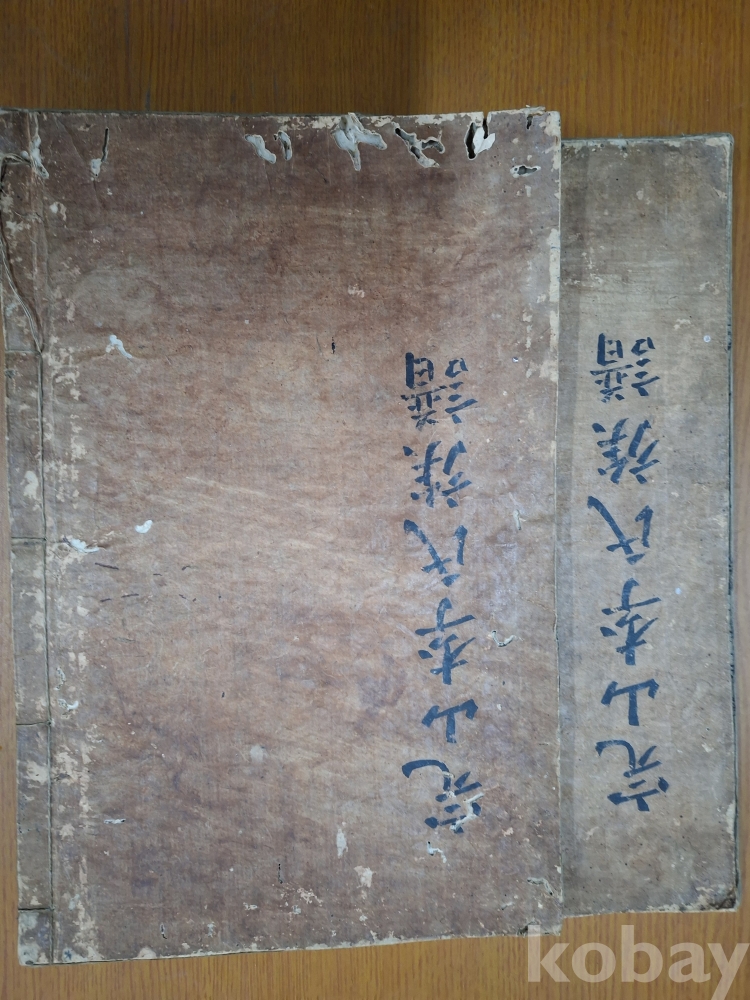 完山李氏族譜
完山李氏族譜
kobay